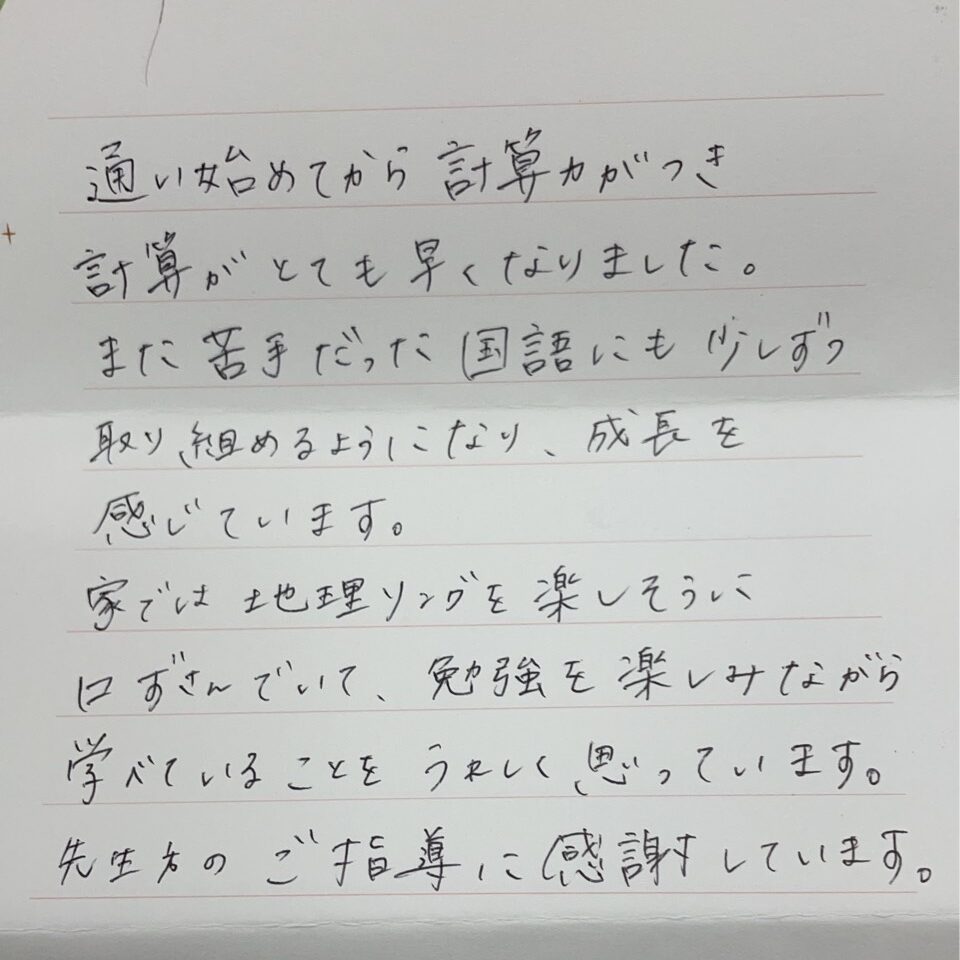 通い始めてから計算力がつき
計算がとても早くなりました。
また苦手だった国語にも少しずつ
取り組めるようになり、成長を
感じています。
家では地理ソングを楽しそうに
口ずさんでいて、勉強を楽しみながら
学べていることをうれしく思っています。
先生方のご指導に感謝しています。